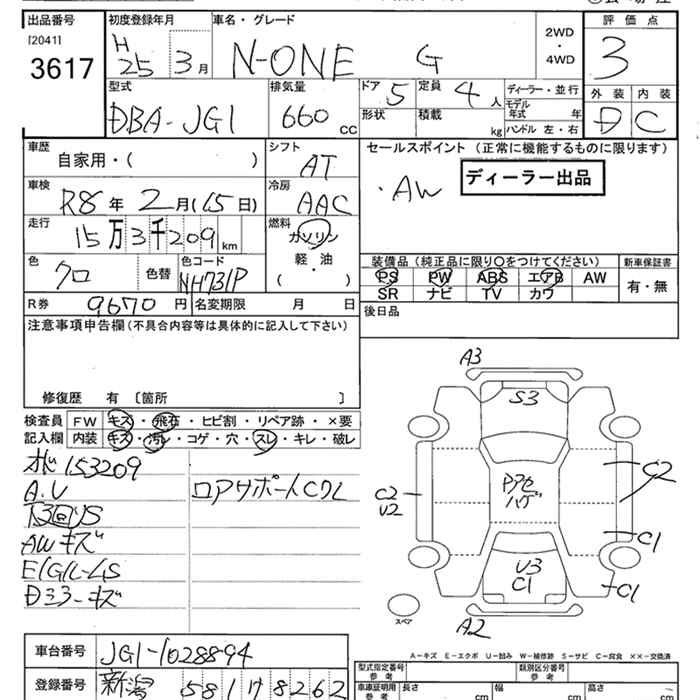 出品番号 初度登録年月 車名・グレード 評価点
[2041]
3617
H25 3月 N-ONE G 2WD・4WD 3
型式 排気量 ドア 5 定員 4人 ディーラー・並行 外装 内装
DBA-JG1 660 cc 形状 積載 kg モデル年式 年 D C
ハンドル 左・右
車歴 シフト セールスポイント (正常に機能するものに限ります)
自家用・( ) AT
ディーラー出品
・AW
車検 冷房
R8年 2月(15日) AAC
走行 燃料
15万3千209km ガソリン
軽・油
( )
色 色替 色コード
クロ NH731P
装備品 (純正品に限り〇をつけてください) 新車保証書
PS PW ABS エアB AW 有・無
SR ナビ TV カワ
R券 9670円 名変期限 月 日 後日品
注意事項申告欄 (不具合内容等は具体的に記入して下さい)
修復歴 有 〔箇所 〕
検査員 FW キズ・飛石・ヒビ割・リペア跡・×要
記入欄 内装 キズ・汚レ・コゲ・穴・スレ・キレ・破レ
153209
A.V ロアサポートCクL
下回りS
AWキズ
Dミラーキズ
A3
S3
C2
U2
ハゲ
C2
C1
U3
C1
C1
A2
スペア
A-キズ E-エクボ U-凹み W-補修跡 S-サビ C-腐食 ××-交換済
車台番号 JG1-1028894
登録番号 新潟 581 ひ 8262
型式指定番号 参考 類別区分番号 参考
車庫証明用 参考 長さ cm 幅 cm 高さ cm